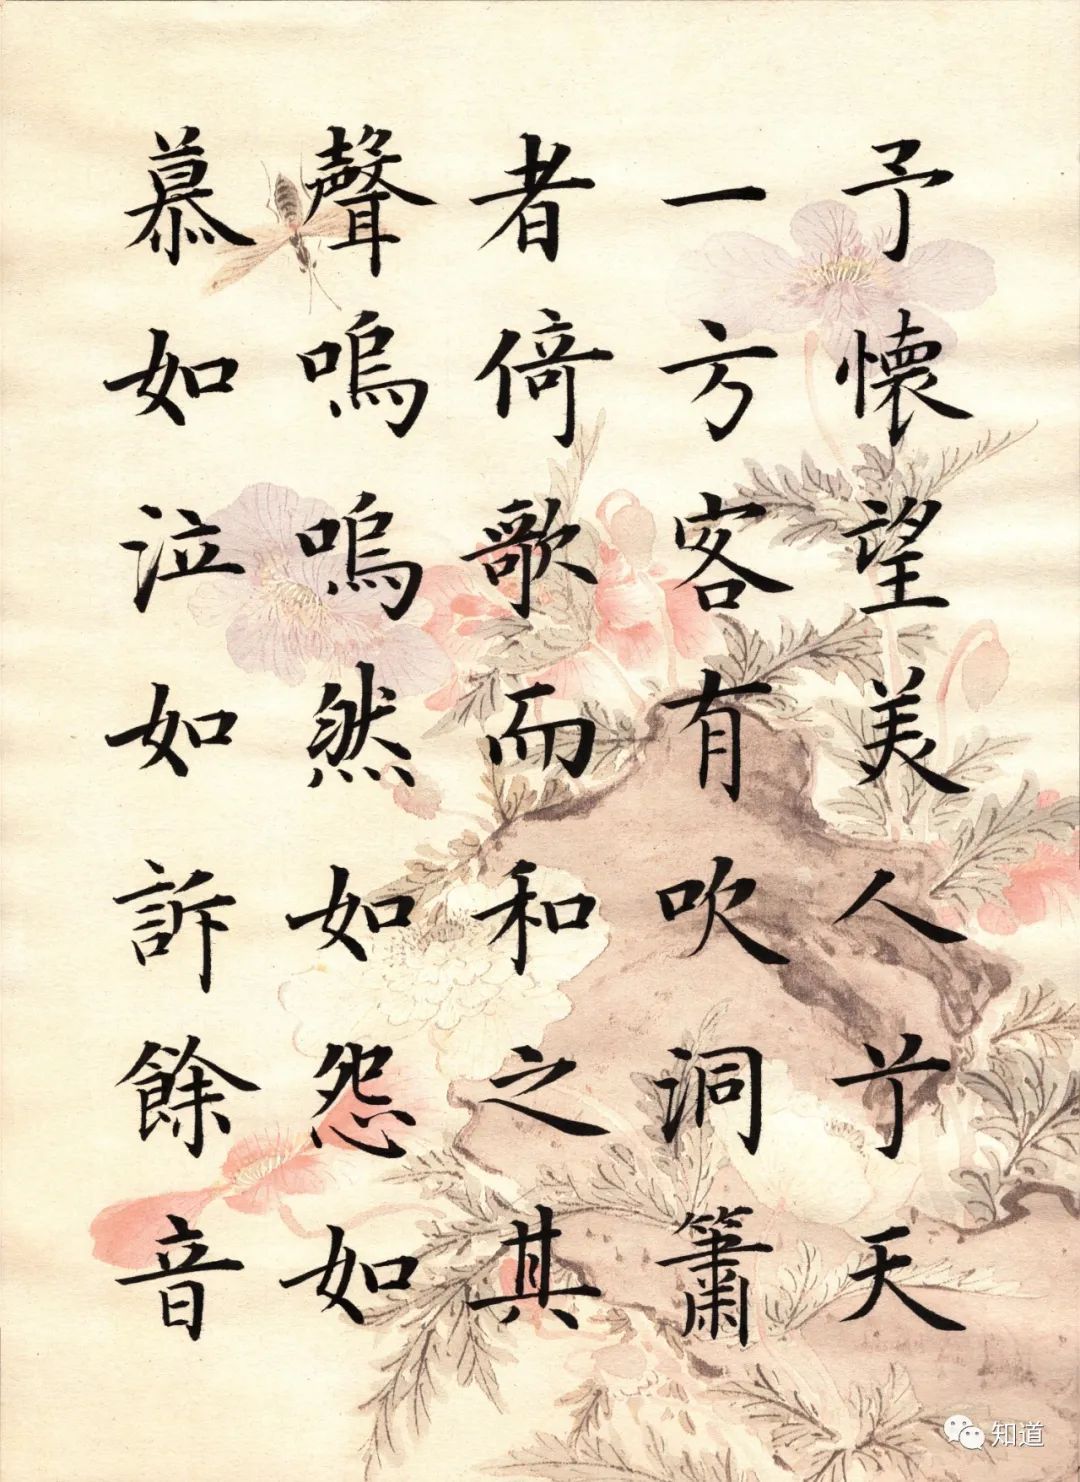 予懷望美人兮天
一方客有吹洞簫
者倚歌而和之其
聲嗚嗚然如怨如
慕如泣如訴餘音
知道